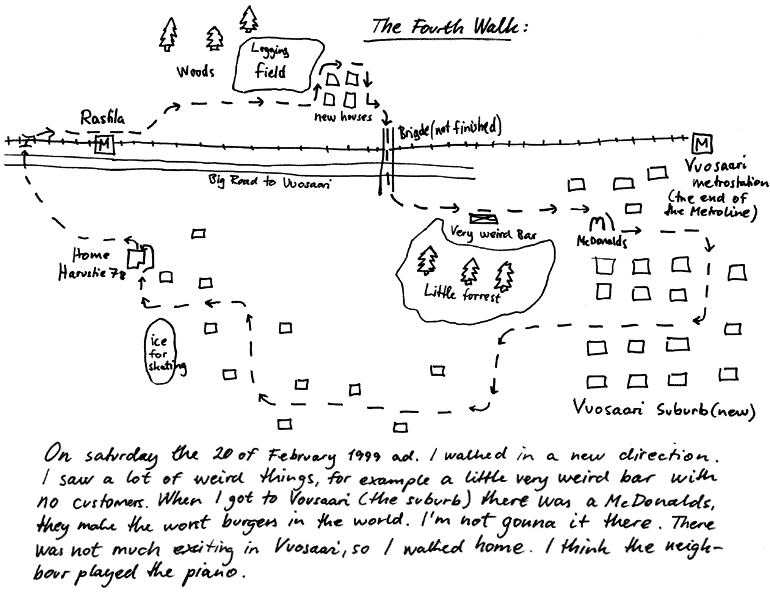 The Fourth Walk:
Logging
field
Woods
new houses
Rastila
M
Brigde (not finished)
M
Vuosaari
metrostation
(the end of
the Metroline)
Big Road to Vuosaari
McDonalds
Very weird Bar
Little forrest
Home
Harustie 7B
ice
for
skating
Vuosaari Suburb (new)
On saturday the 20 of February 1999 ad. I walked in a new direction.
I saw a lot of weird things, for example a little very weird bar with
no customers. When I got to Vousaari (the suburb) there was a McDonalds,
they make the worst burgers in the world. I'm not gonna it there. There
was not much exiting in Vuosaari, so I walked home. I think the neigh-
bour played the piano.